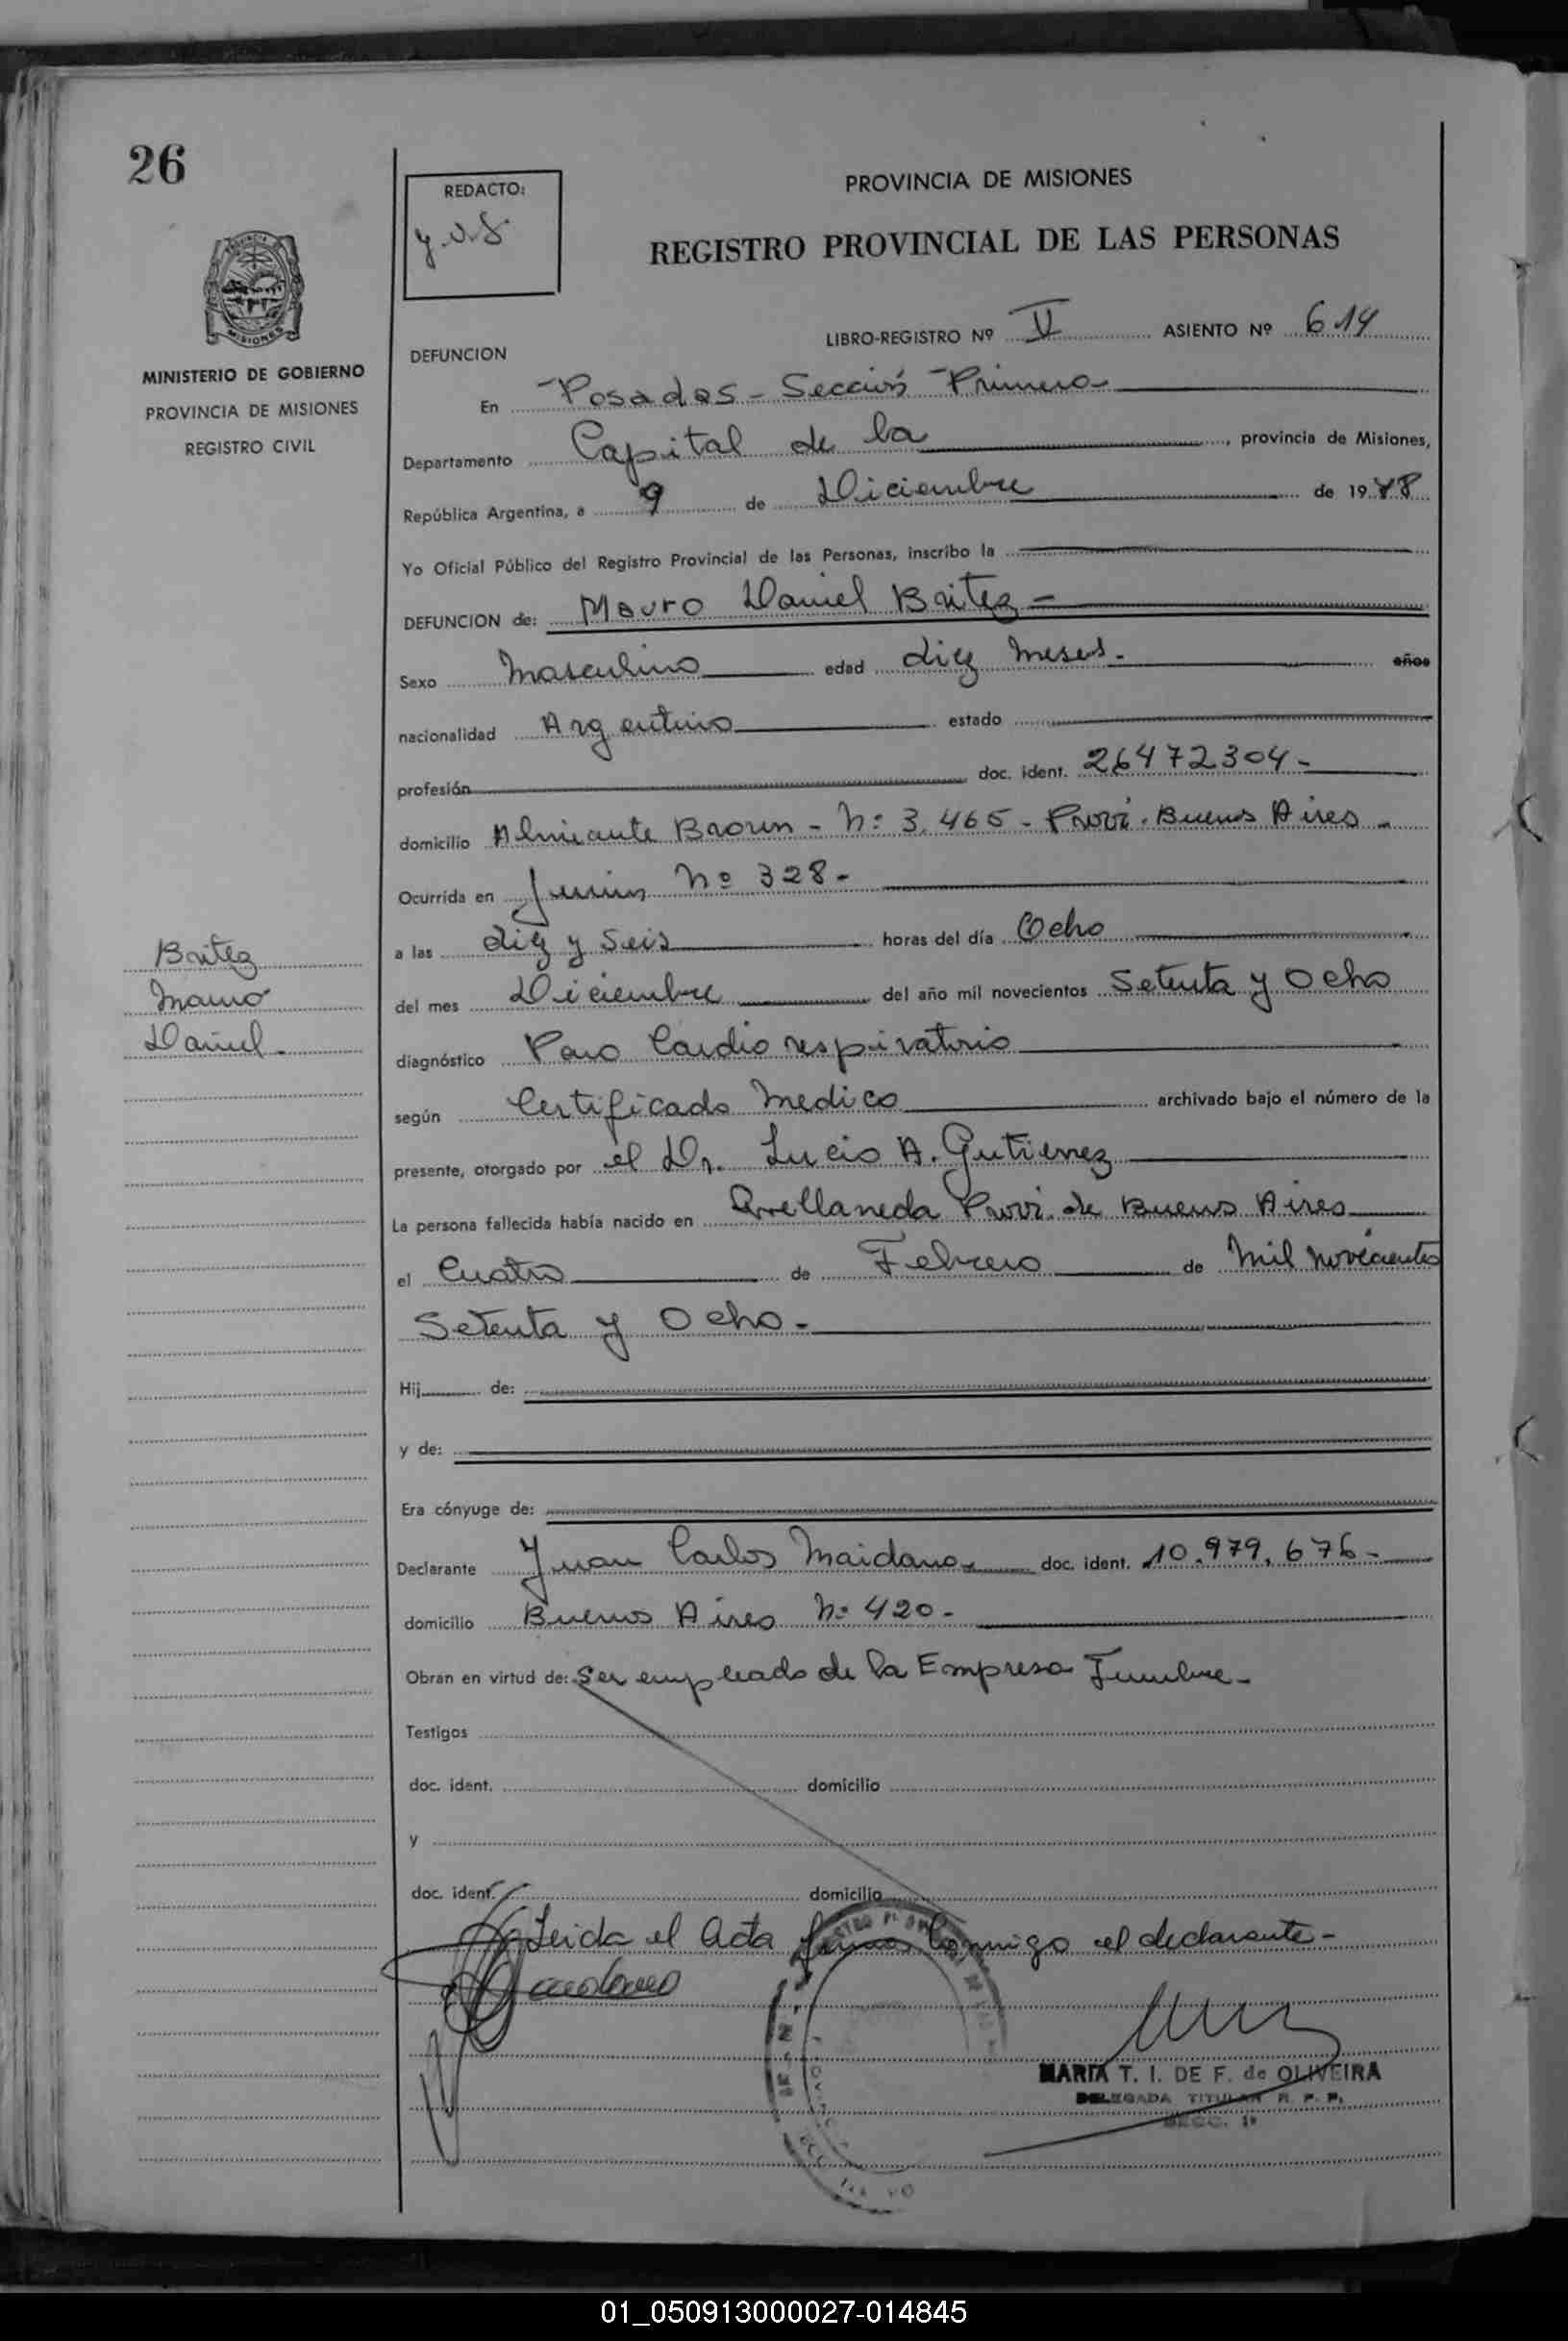 26
REDACTO:
PROVINCIA DE MISIONES
REGISTRO PROVINCIAL DE LAS PERSONAS
MINISTERIO DE GOBIERNO
PROVINCIA DE MISIONES
REGISTRO CIVIL
LIBRO-REGISTRO Nº V ASIENTO Nº 614
DEFUNCION
En Posadas - Sección Primera
Departamento Capital de la, provincia de Misiones,
República Argentina, a 9 de Diciembre de 1978
Yo Oficial Público del Registro Provincial de las Personas, inscribo la
DEFUNCION de: Mauro Daniel Britez -
Sexo Masculino edad diez meses. años
nacionalidad Argentino estado
profesión doc. ident. 26472304-
domicilio Almirante Brown - Nº 3.465 - Provi. Buenos Aires -
Ocurrida en Junin Nº 328-
a las diez y seis horas del día Ocho
del mes Diciembre del año mil novecientos Setenta y Ocho
diagnóstico Paro Cardio respiratorio
según Certificado Medico archivado bajo el número de la
presente, otorgado por el Dr. Lucio A. Gutierrez
La persona fallecida había nacido en Avellaneda Provi. de Buenos Aires
el Cuatro de Febrero de Mil novecientos
Setenta y Ocho.
Hij de:
y de:
Era cónyuge de:
Declarante Juan Carlos Maidana doc. ident. 10.979.676-
domicilio Buenos Aires Nº 420-
Obran en virtud de: Ser empleado de la Empresa Funebre-
Testigos
doc. ident. domicilio
y
doc. ident. domicilio
Leida el Acta firma Conmigo el declarante-
MARIA T. I. DE F. de OLIVEIRA
DELEGADA TITULAR R. P. P.
SECC. 1ª
Britez
Mauro
Daniel.
01_050913000027-014845